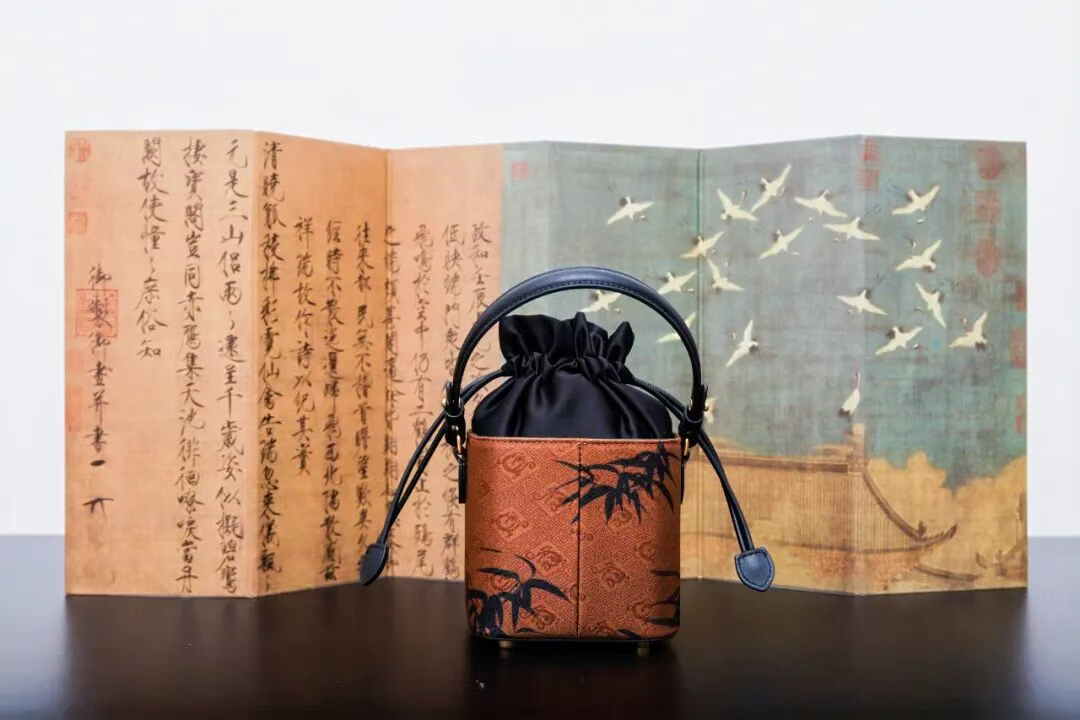 政和壬辰
低映端門衆
飛鳴於空中仍有二鶴對止於鴟尾
往來都民無不稽首瞻望歎異久
經時不散迤邐歸飛西北隅散感兹
祥瑞故作詩以紀其實
清曉觚稜拂彩霓仙禽告瑞忽來儀飄〻
元是三山侶兩〻還呈千歲姿似擬碧鸞
棲寶閣豈同赤鴈集天池徘徊嘹唳當丹
闕故使憧〻庶俗知
御製御畫并書